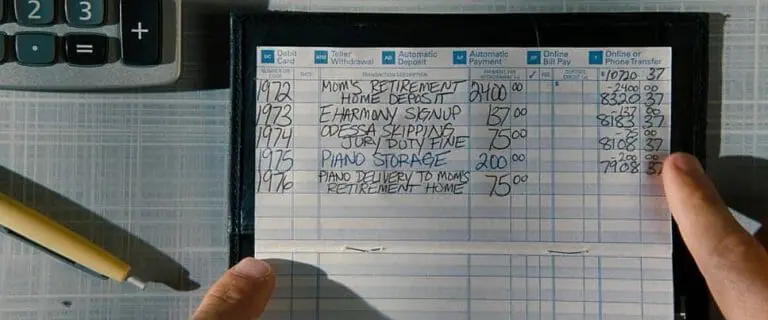 2 3
. = +
DC Debit Card ATM Teller Withdrawal AD Automatic Deposit AP Automatic Payment BP Online Bill Pay T Online or Phone Transfer
NUMBER OR CODE DATE TRANSACTION DESCRIPTION PAYMENT, FEE, WITHDRAWAL (-) ✓ FEE DEPOSIT, CREDIT (+) $10720 37
1972 MOM'S RETIREMENT 2400 00 $ -2400 00
HOME DEPOSIT 8320 37
1973 EHARMONY SIGNUP 137 00 -137 00
8183 37
1974 ODESSA SKIPPING 75 00 -75 00
JURY DUTY FINE 8108 37
1975 PIANO STORAGE 200 00 -200 00
7908 37
1976 PIANO DELIVERY TO MOM'S 75 00
RETIREMENT HOME